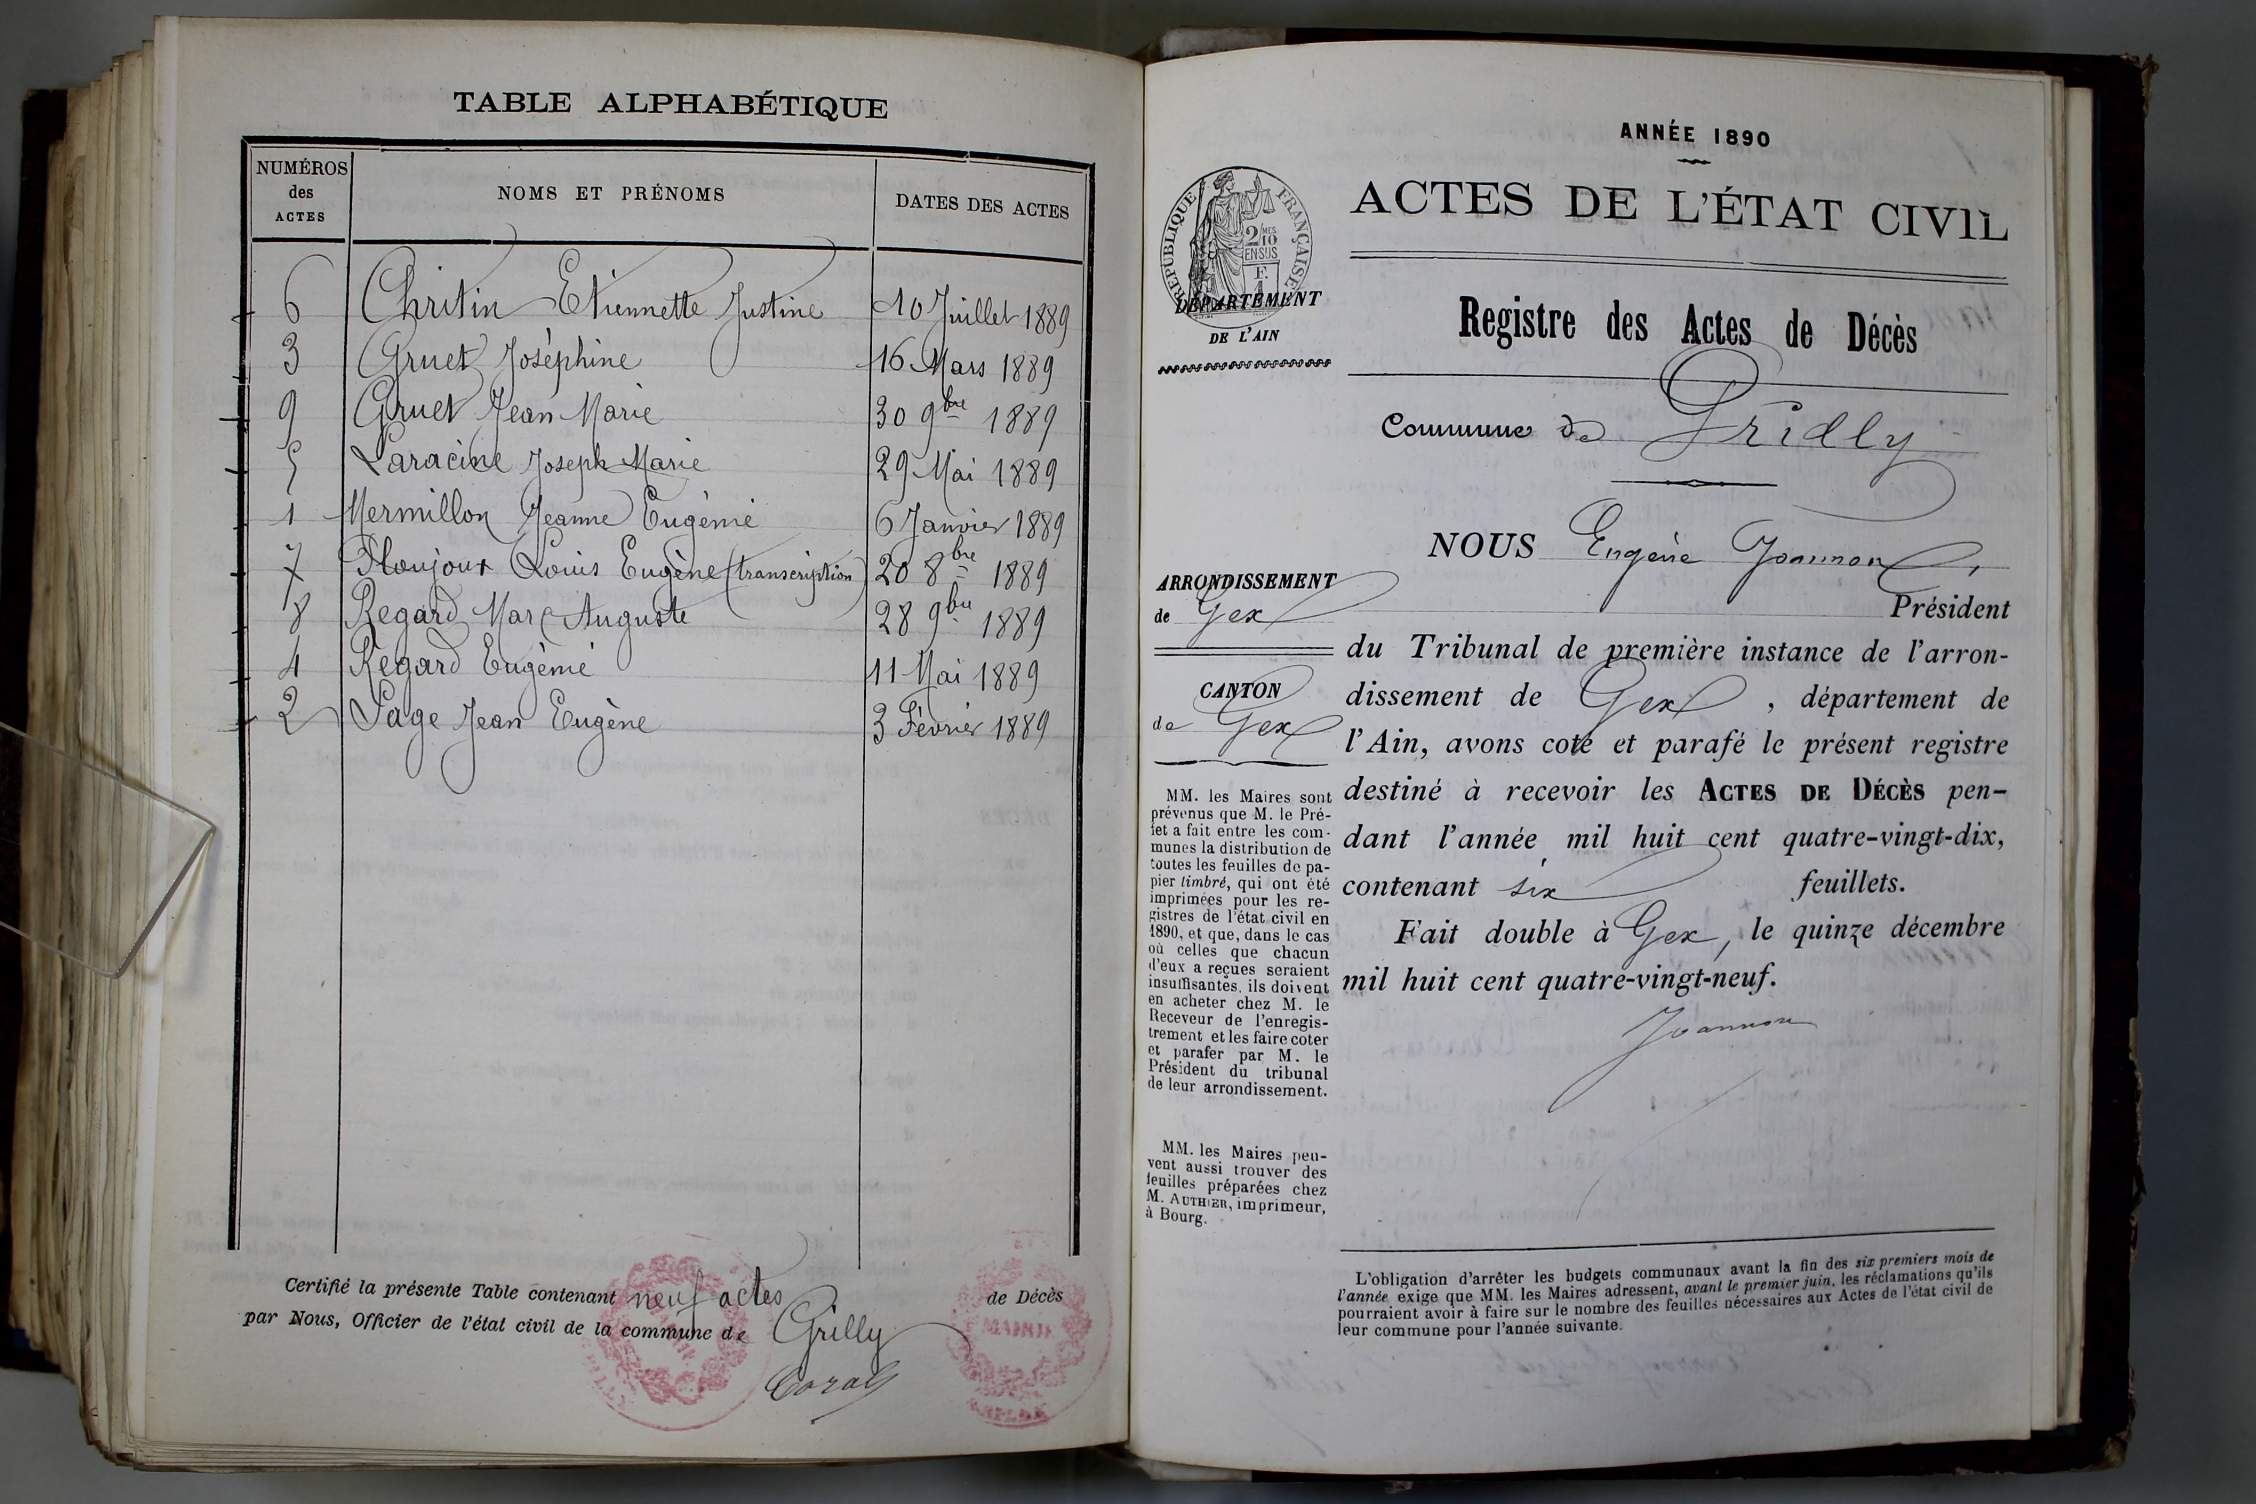 TABLE ALPHABÉTIQUE
NUMÉROS des ACTES NOMS ET PRÉNOMS DATES DES ACTES
6 Chritin Etiennette Justine 10 Juillet 1889
3 Gruet Joséphine 16 Mars 1889
9 Gruet Jean Marie 30 9bre 1889
5 Laracine Joseph Marie 29 Mai 1889
1 Mermillon Jeanne Eugénie 6 Janvier 1889
7 Ploujoux Louis Eugène (transcription) 20 8bre 1889
8 Regard Marc Auguste 28 9bre 1889
4 Regard Eugénie 11 Mai 1889
2 Sage Jean Eugène 3 Février 1889
Certifié la présente Table contenant neuf actes de Décès
par Nous, Officier de l'état civil de la commune de Grilly
ANNÉE 1890
ACTES DE L'ÉTAT CIVIL
RÉPUBLIQUE FRANÇAISE
2/10
MES
EN SUS
DÉPARTEMENT
DE L'AIN
Registre des Actes de Décès
Commune de Grilly
NOUS Eugène Joannon,
Président
du Tribunal de première instance de l'arron-
dissement de Gex, département de
l'Ain, avons coté et parafé le présent registre
destiné à recevoir les ACTES DE DÉCÈS pen-
dant l'année mil huit cent quatre-vingt-dix,
contenant six feuillets.
Fait double à Gex, le quinze décembre
mil huit cent quatre-vingt-neuf.
Joannon
ARRONDISSEMENT
de Gex
CANTON
de Gex
MM. les Maires sont
prévenus que M. le Pré-
fet a fait entre les com-
munes la distribution de
toutes les feuilles de pa-
pier timbré, qui ont été
imprimées pour les re-
gistres de l'état civil en
1890, et que, dans le cas
où celles que chacun
d'eux a reçues seraient
insuffisantes, ils doivent
en acheter chez M. le
Receveur de l'enregis-
trement et les faire coter
et parafer par M. le
Président du tribunal
de leur arrondissement.
MM. les Maires peu-
vent aussi trouver des
feuilles préparées chez
M. AUTHIER, imprimeur,
à Bourg.
L'obligation d'arrêter les budgets communaux avant la fin des six premiers mois de
l'année exige que MM. les Maires adressent, avant le premier juin, les réclamations qu'ils
pourraient avoir à faire sur le nombre des feuilles nécessaires aux Actes de l'état civil de
leur commune pour l'année suivante.